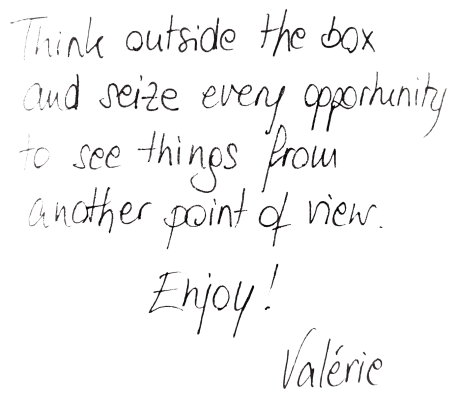 Think outside the box
and seize every opportunity
to see things from
another point of view.
Enjoy!
Valérie